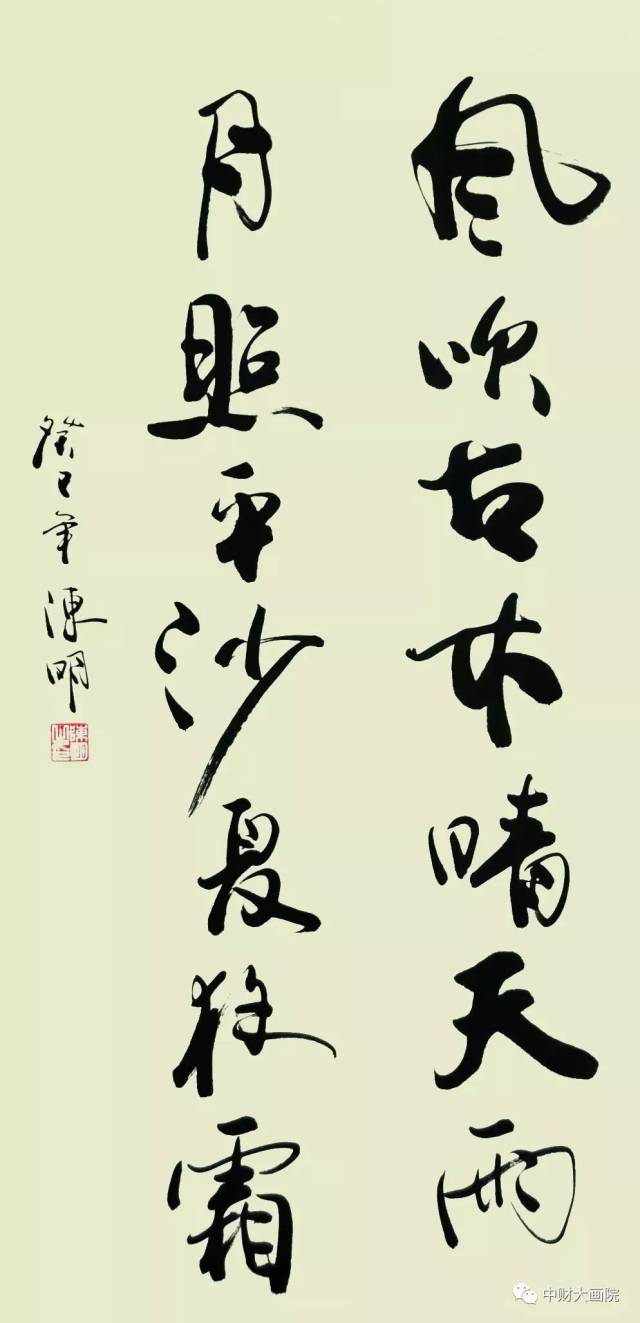 风吹古木晴天雨
月照平沙夏夜霜
癸巳年 陈明
中财大画院